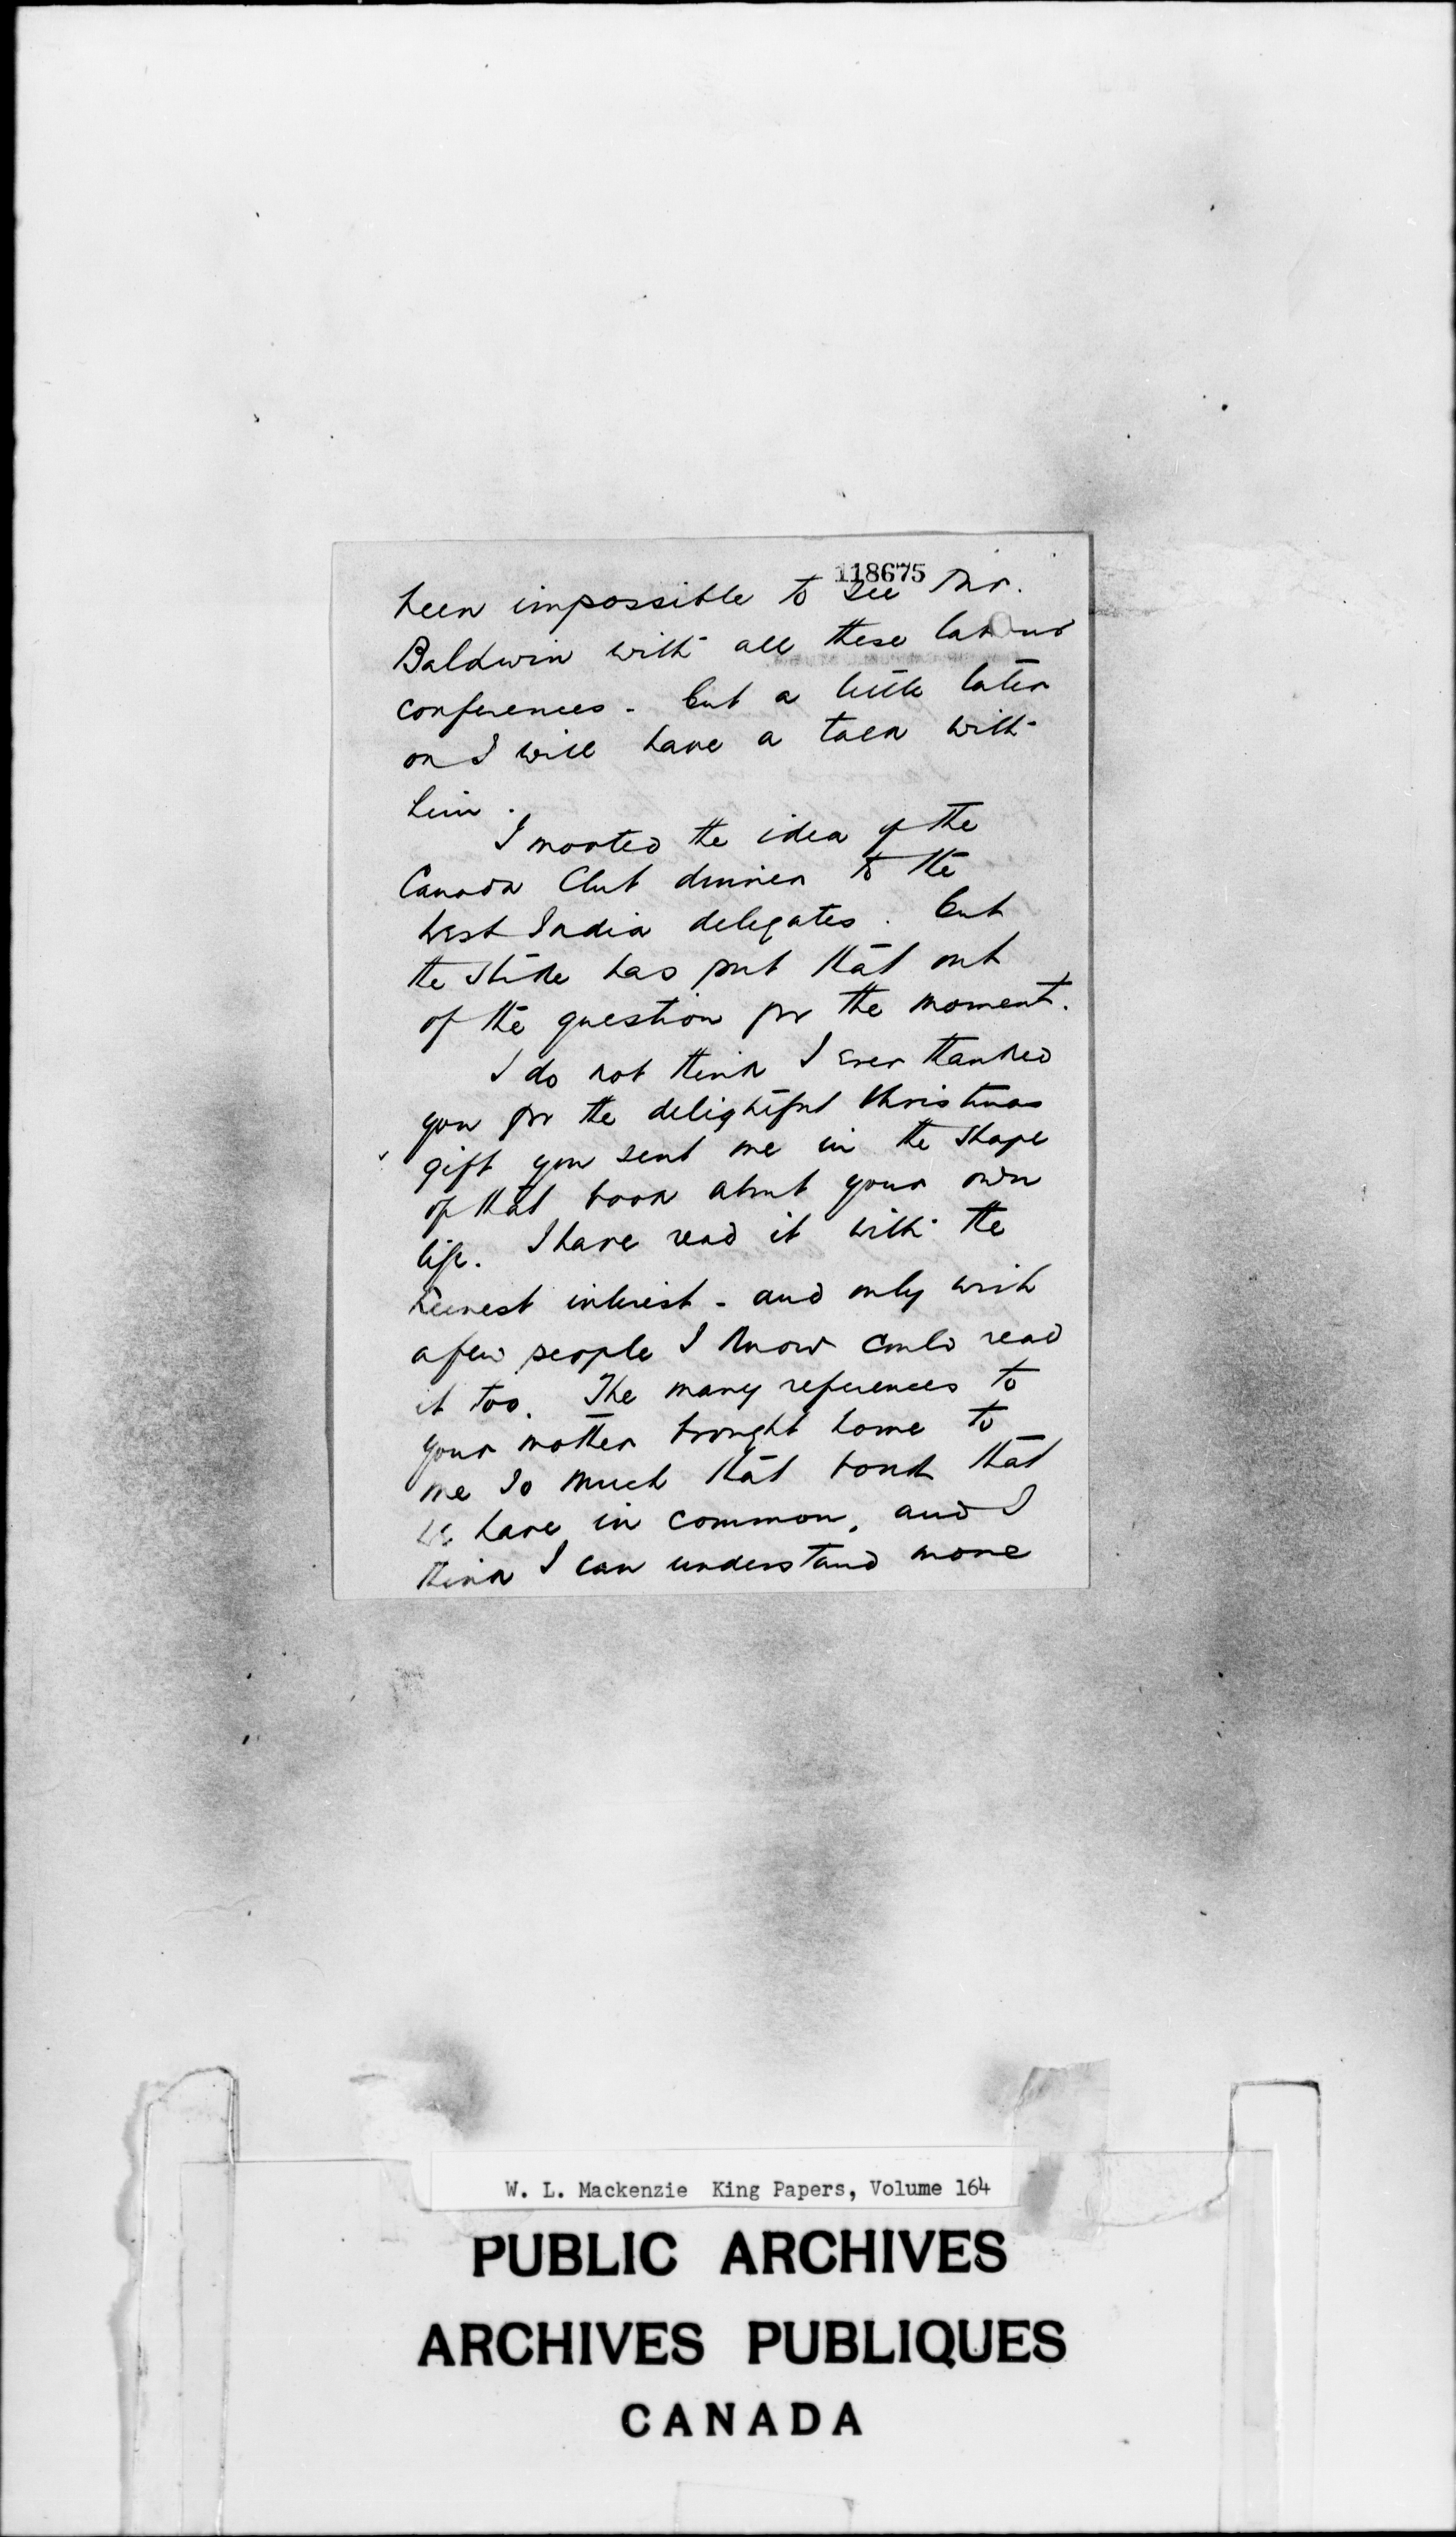 118675
been impossible to see Mr.
Baldwin with all these labour
conferences - but a little later
on I will have a talk with
him.
I mooted the idea of the
Canada Club dinner to the
West India delegates. But
the strike has put that out
of the question for the moment.
I do not think I ever thanked
you for the delightful Christmas
gift you sent me in the shape
of that book about your own
life. I have read it with the
keenest interest - and only wish
a few people I know could read
it too. The many references to
your mother brought home to
me so much that bond that
we have in common, and I
think I can understand more
W. L. Mackenzie King Papers, Volume 164
PUBLIC ARCHIVES
ARCHIVES PUBLIQUES
CANADA